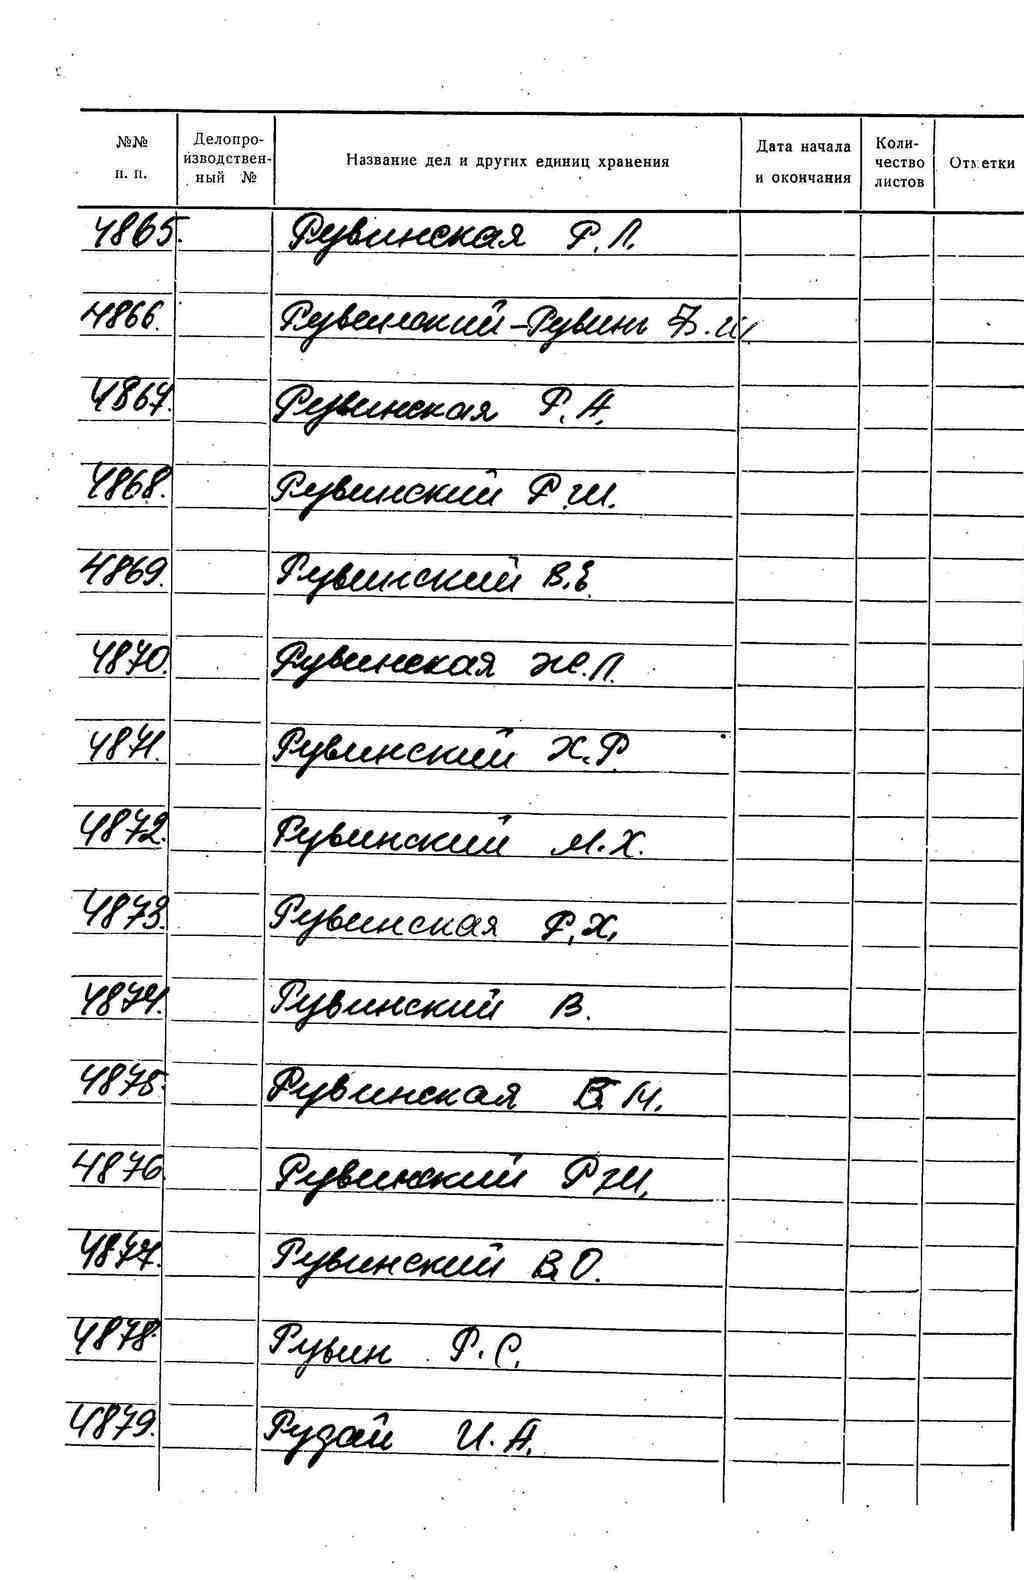 №№ п. п. Делопро-изводствен-ный № Название дел и других единиц хранения Дата начала и окончания Коли-чество листов Отметки
4865. Рувинская Р. Л.
4866. Рувинский-Рувинь З. Ш.
4867. Рувинская Р. А.
4868. Рувинский Р. Ш.
4869. Рувинский В. Е.
4870. Рувинская Ж. Л.
4871. Рувинский Х. Р.
4872. Рувинский М. Х.
4873. Рувинская Р. Х.
4874. Рувинский В.
4875. Рувинская Б. И.
4876. Рувинский Р. Ш.
4877. Рувинский В. О.
4878. Рувин Р. С.
4879. Рудой И. А.